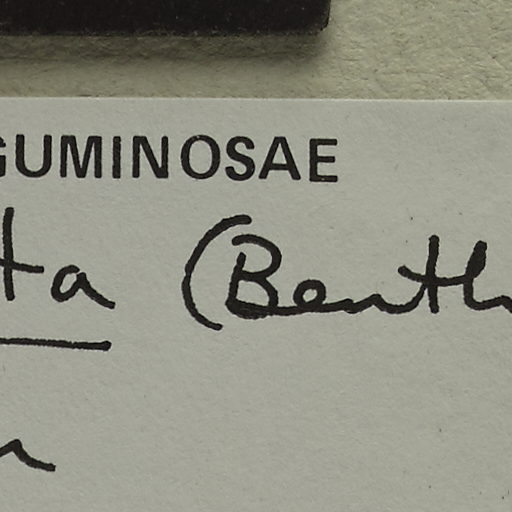 GUMINOSAE
ta (Benth